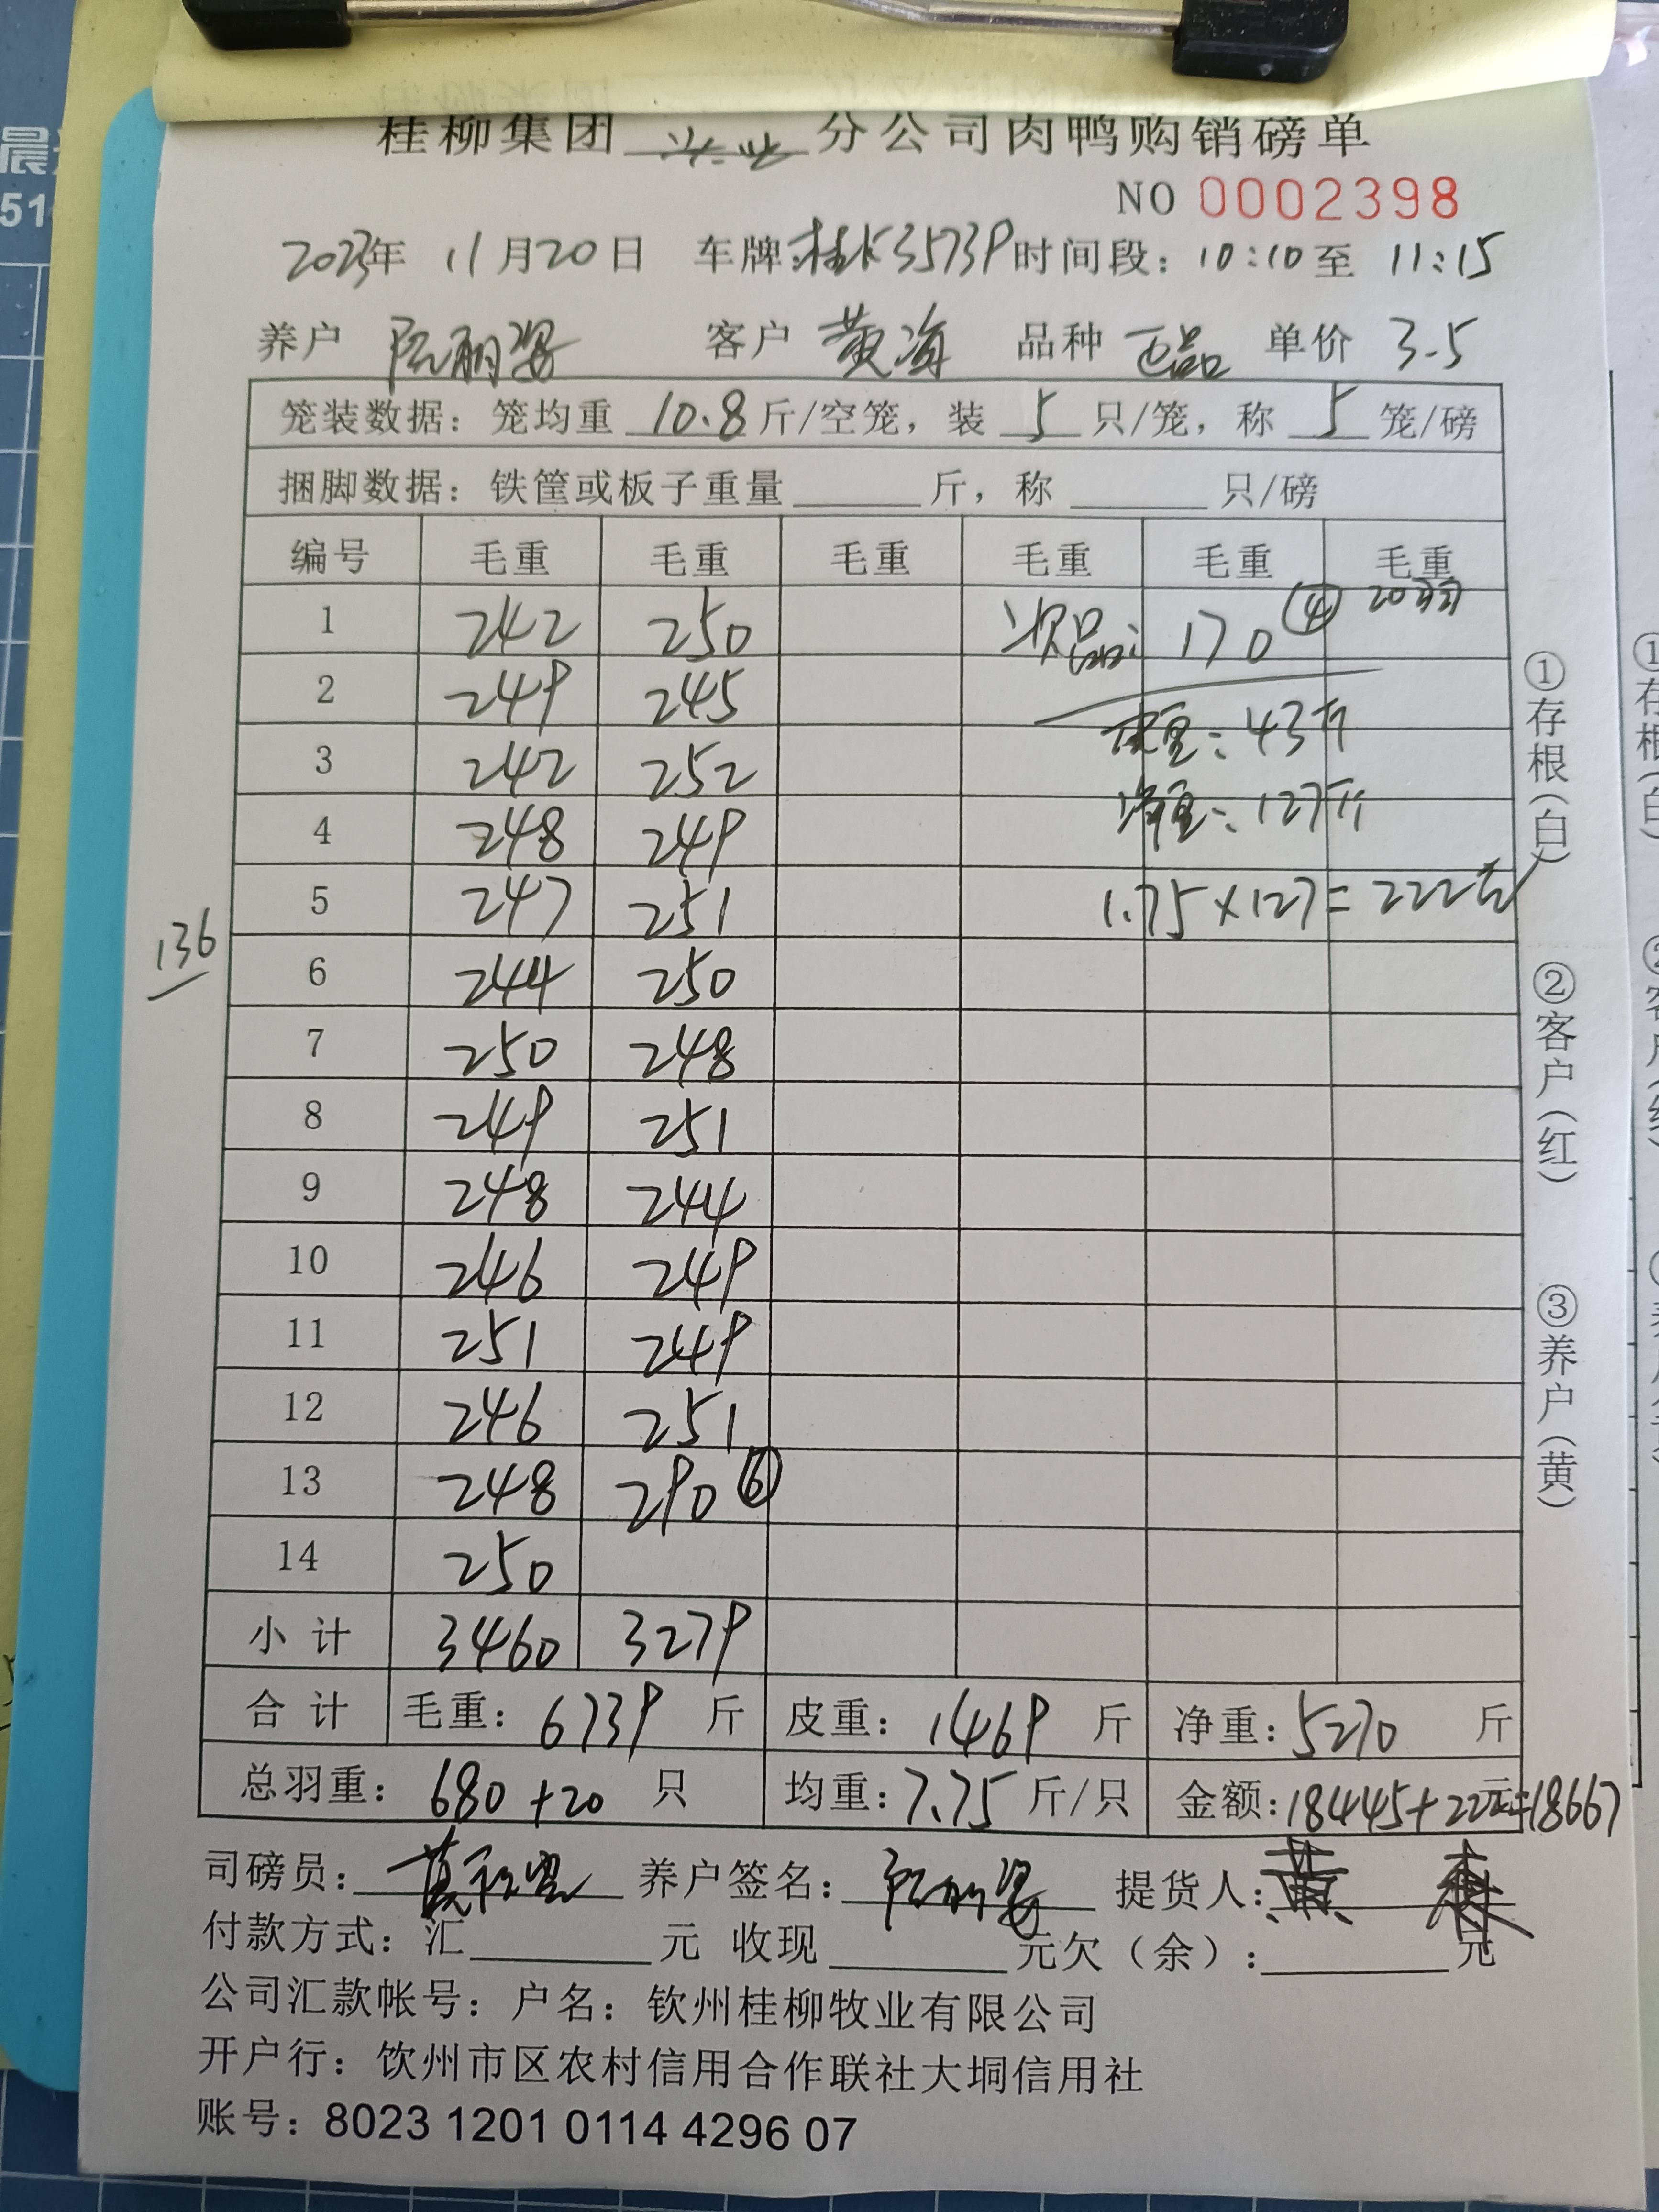 桂柳集团 兴业 分公司肉鸭购销磅单
NO 0002398
2023年 11月20日 车牌:桂K35739 时间段: 10:10 至 11:15
养户 阮丽姿 客户 黄海 品种 正品 单价 3.5
笼装数据: 笼均重 10.8 斤/空笼, 装 5 只/笼, 称 5 笼/磅
捆脚数据: 铁筐或板子重量 斤, 称 只/磅
编号 毛重 毛重 毛重 毛重 毛重 毛重
1 242 250 次品: 170 ④ 20羽
2 249 245 皮重: 43斤
3 242 252
4 248 249 净重: 127斤
5 247 251 1.75×127=222元
136
6 244 250
7 250 248
8 249 251
9 248 244
10 246 249
11 251 249
12 246 251
13 248 290 ⑥
14 250
小计 3460 3279
合计 毛重: 6739 斤 皮重: 1469 斤 净重: 5270 斤
总羽重: 680+20 只 均重: 7.75 斤/只 金额: 18445+222元=18667
司磅员: 养户签名: 阮丽姿 提货人: 黄
付款方式: 汇 元 收现 元欠(余): 元
公司汇款帐号: 户名: 钦州桂柳牧业有限公司
开户行: 钦州市区农村信用合作联社大垌信用社
账号: 8023 1201 0114 4296 07
①存根(白) ②客户(红) ③养户(黄)